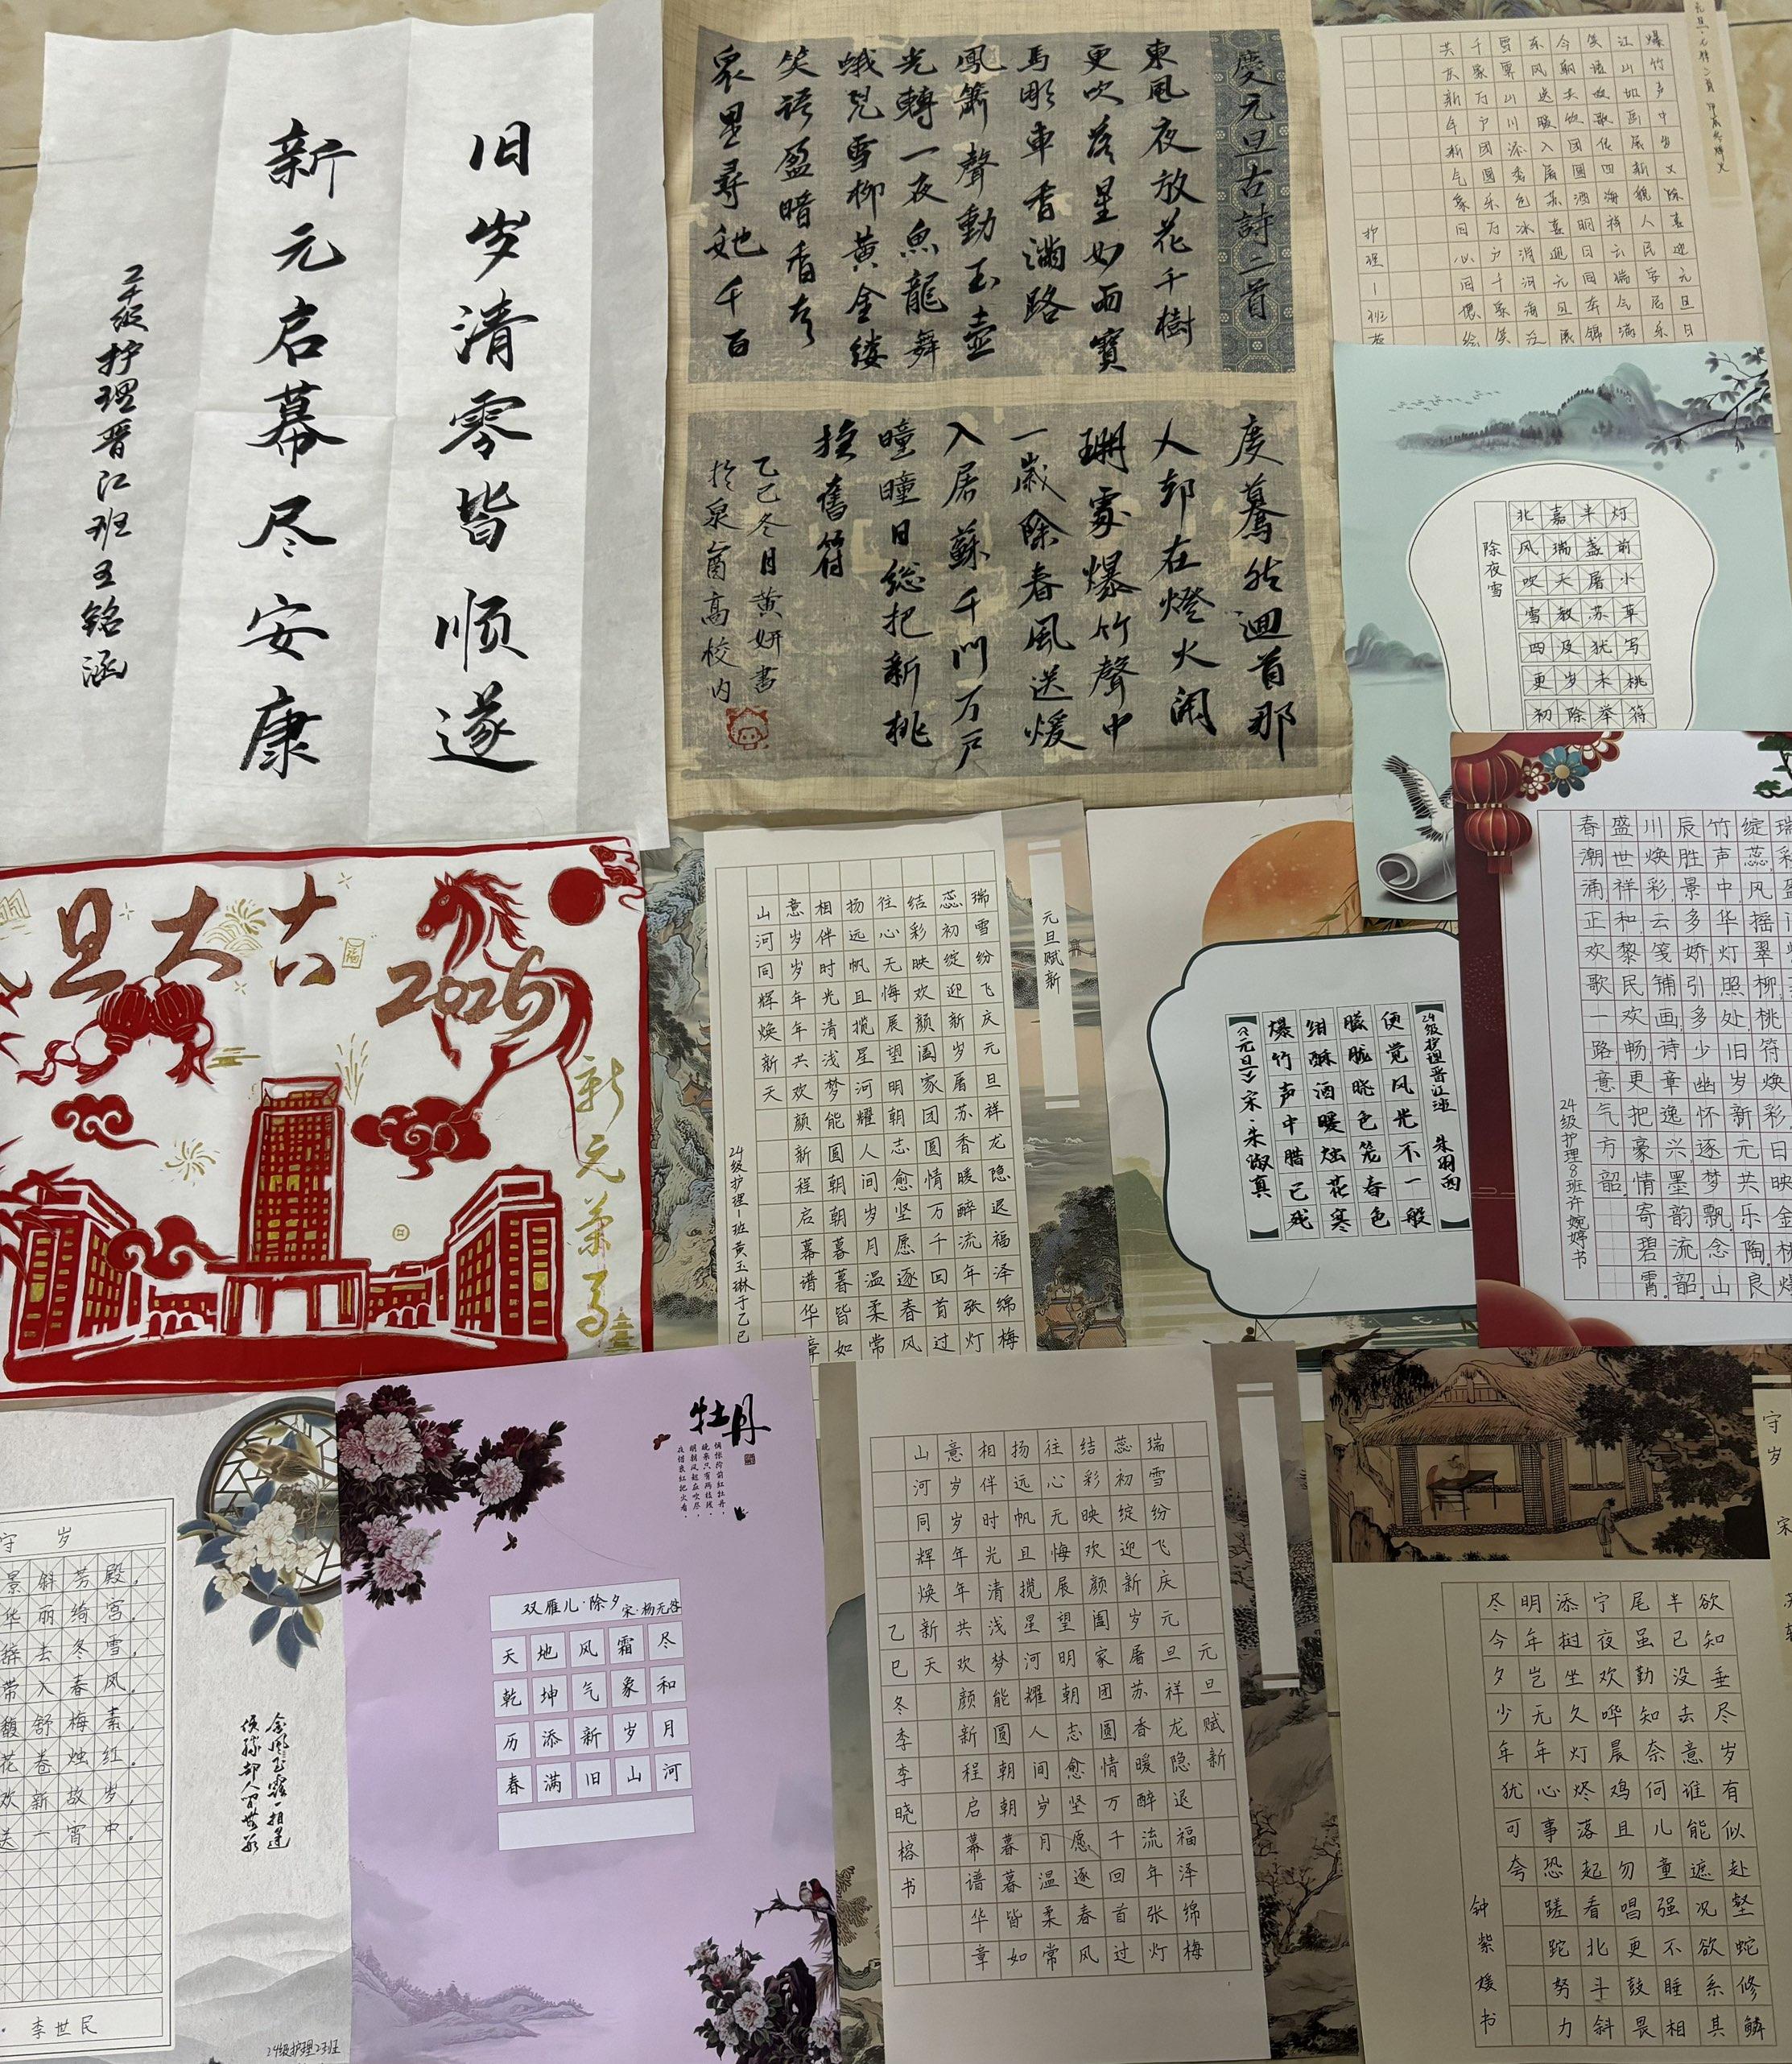 旧岁清零皆顺遂
新元启幕尽安康
24级护理晋江班王铭涵
慶元旦古詩二首
東風夜放花千樹
更吹落星如雨寶
馬彫車香滿路
鳳簫聲動玉壺
光轉一夜魚龍舞
蛾兒雪柳黄金缕
笑语盈暗香去
衆里尋她千百
度驀然迴首那
人却在燈火闌
珊處爆竹聲中
一歲除春風送煖
入屠蘇千门万户
曈曈日總把新桃
换舊符
乙巳冬月黄妍書
於泉酉高校内
爆竹声中岁又除喜迎元旦日
江山如画展新貌人民安居乐
笑语欢歌传四海祥云瑞气满
护理1班
灯前小草写桃符
半盏屠苏犹未举
嘉瑞天教及岁除
北风吹雪四更初
除夜雪
春潮涌正欢歌一路意气方韶
盛世祥和黎民欢畅更把豪情寄碧霄
川焕彩云笺铺画诗章逸兴墨韵流韶
辰胜景多娇引多少幽怀逐梦飘念山
竹声中华灯照处旧岁新元共乐陶良
绽蕊风摇翠柳桃符焕彩日映金
24级护理8班许婉婷书
旦大吉
2026
新元策马
元旦赋新
瑞雪纷飞庆元旦祥龙隐退福泽绵梅
蕊初绽迎新岁屠苏香暖醉流年张灯
结彩映欢颜阖家团圆情万千回首过
往心无悔展望明朝志愈坚愿逐春风
扬远帆且揽星河耀人间岁月温柔常
相伴时光清浅梦能圆朝朝暮暮皆如
意岁岁年年共欢颜新程启幕谱华章
山河同辉焕新天
24级护理1班黄玉琳于乙巳
【24级护理晋江班 朱羽西】
便觉风光不一般
朦胧晓色笼春色
绀酥酒暖烛花寒
爆竹声中腊已残
【《元旦》宋·朱淑真】
守岁
景斜芳殿,
华丽绮宫.
辞去冬雪,
带入春风.
馥舒梅素,
花卷烛红.
欢新故岁,
送一宵中.
李世民
金风玉露一相逢
便胜却人间无数
24级护理23班
牡丹
惆怅阶前红牡丹,
晚来只有两枝残,
明朝风起应吹尽,
夜惜衰红把火看。
双雁儿·除夕 宋·杨无咎
天地风霜尽
乾坤气象和
历添新岁月
春满旧山河
元旦赋新
瑞雪纷飞庆元旦祥龙隐退福泽绵梅
蕊初绽迎新岁屠苏香暖醉流年张灯
结彩映欢颜阖家团圆情万千回首过
往心无悔展望明朝志愈坚愿逐春风
扬远帆且揽星河耀人间岁月温柔常
相伴时光清浅梦能圆朝朝暮暮皆如
意岁岁年年共欢颜新程启幕谱华章
山河同辉焕新天
乙巳冬李李晓榕书
守岁 宋
欲知垂尽岁有似赴壑蛇修鳞
半已没去意谁能遮况欲系其
尾虽勤知奈何儿童强不睡相
宁夜欢哗晨鸡且勿唱更鼓畏
添挝坐久灯烬落起看北斗斜
明年岂无年心事恐蹉跎努力
尽今夕少年犹可夸
钟紫媛书